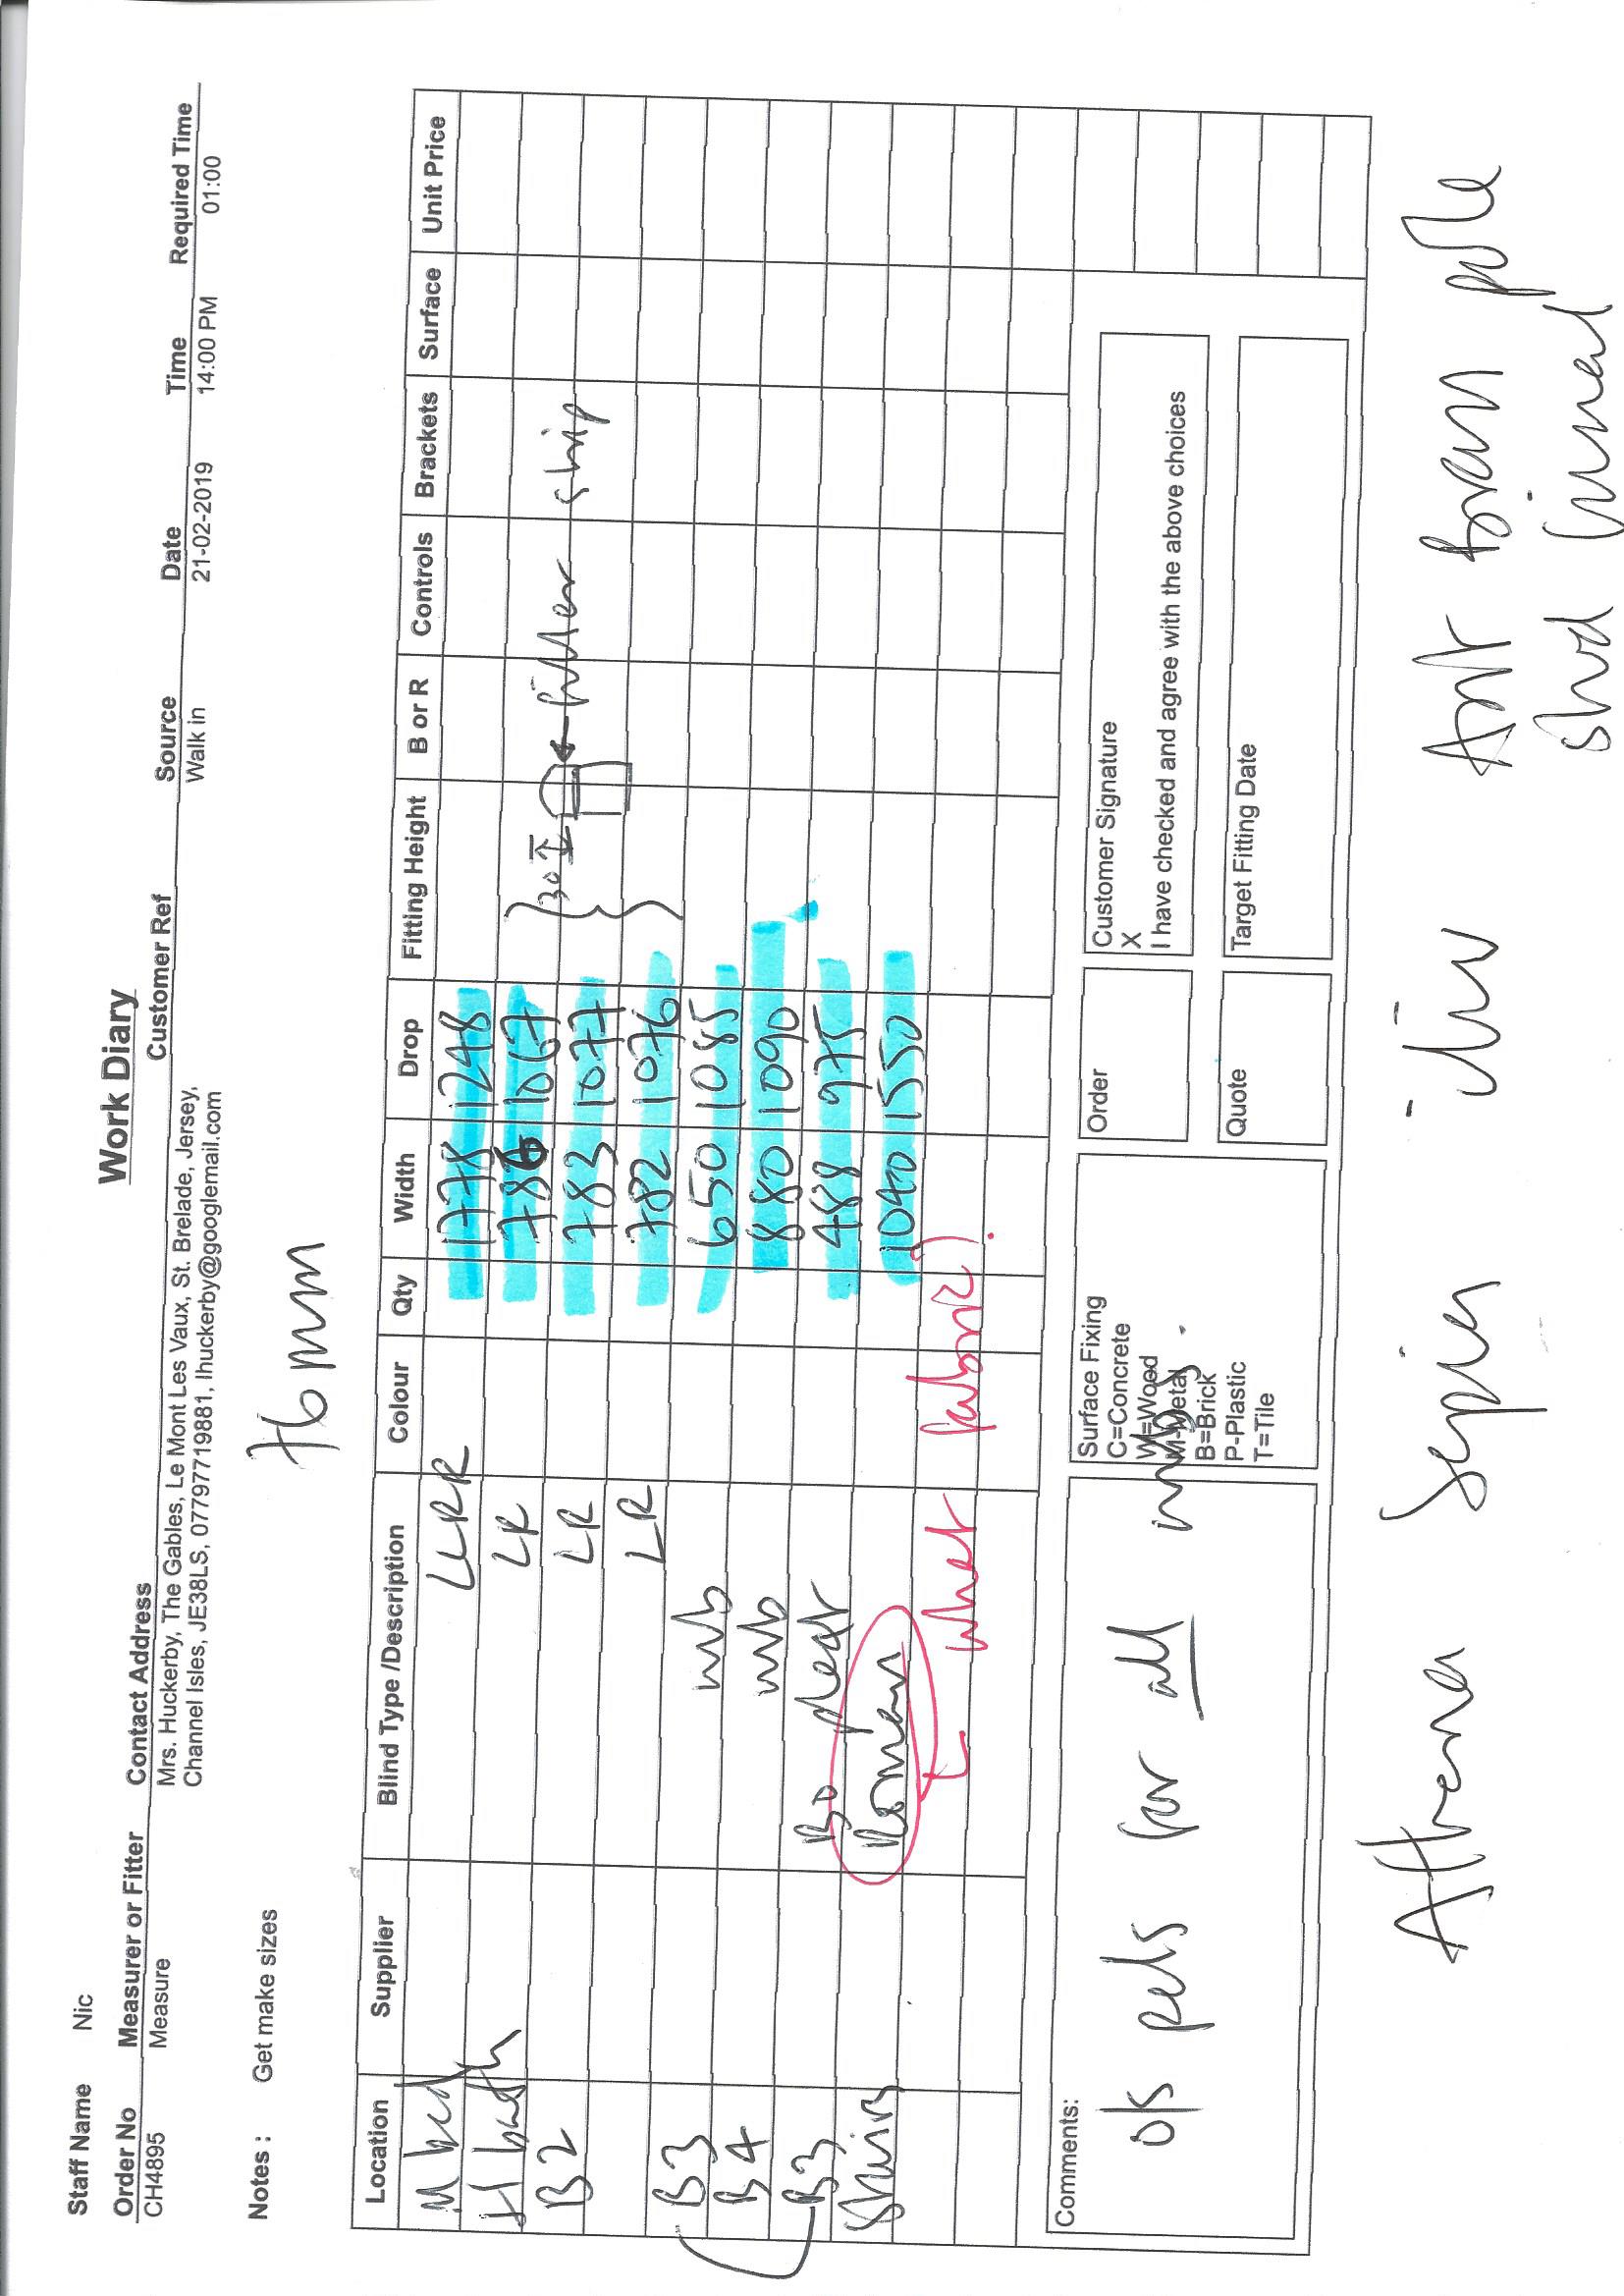 Work Diary
Staff Name Nic
Order No Measurer or Fitter Contact Address Customer Ref Source Date Time Required Time
CH4895 Measure Mrs. Huckerby, The Gables, Le Mont Les Vaux, St. Brelade, Jersey, Walk in 21-02-2019 14:00 PM 01:00
Channel Isles, JE38LS, 07797719881, lhuckerby@googlemail.com
Notes : Get make sizes
76mm
Location Supplier Blind Type /Description Colour Qty Width Drop Fitting Height B or R Controls Brackets Surface Unit Price
M bed LLRR 1778 1248
H bath LR 786 1067
B2 LR 783 1077 30 filler strip
LR 782 1076
B3 wb 650 1085
B4 wb 880 1090
B3 Bo pleat 488 975
Stairs Roman 1040 1550
what fabric?
Comments:
o/s pels for all wbs.
Surface Fixing
C=Concrete
W=Wood
M-Metal
B=Brick
P-Plastic
T=Tile
Order
Quote
Customer Signature
X
I have checked and agree with the above choices
Target Fitting Date
Athena Sepia Ant brass pole
stud finial